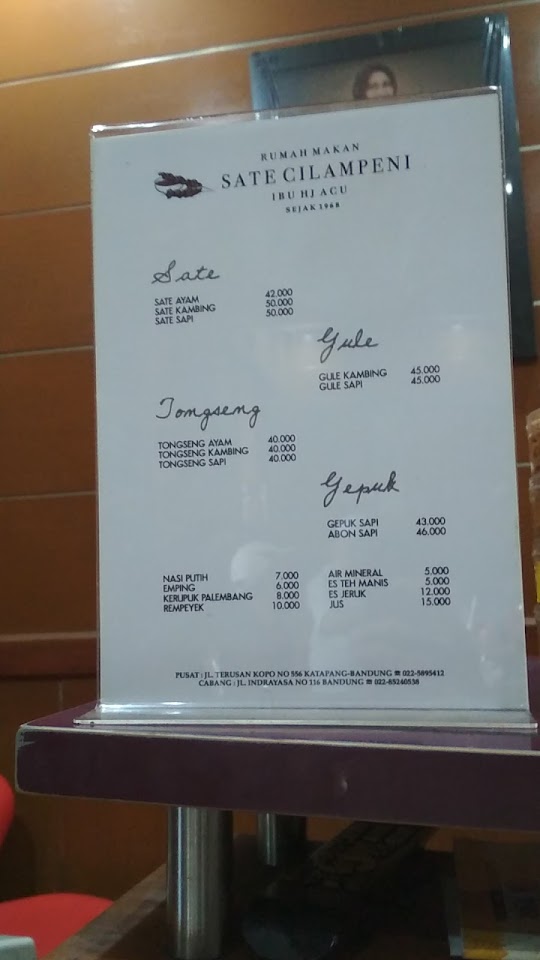 RUMAH MAKAN
SATE CILAMPENI
IBU HJ ACU
SEJAK 1968
Sate
SATE AYAM 42.000
SATE KAMBING 50.000
SATE SAPI 50.000
Gule
GULE KAMBING 45.000
GULE SAPI 45.000
Tongseng
TONGSENG AYAM 40.000
TONGSENG KAMBING 40.000
TONGSENG SAPI 40.000
Gepuk
GEPUK SAPI 43.000
ABON SAPI 46.000
NASI PUTIH 7.000
EMPING 6.000
KERUPUK PALEMBANG 8.000
REMPEYEK 10.000
AIR MINERAL 5.000
ES TEH MANIS 5.000
ES JERUK 12.000
JUS 15.000
PUSAT : JL. TERUSAN KOPO NO 556 KATAPANG-BANDUNG ☎ 022-5895412
CABANG : JL. INDRAYASA NO 116 BANDUNG ☎ 022-85260538